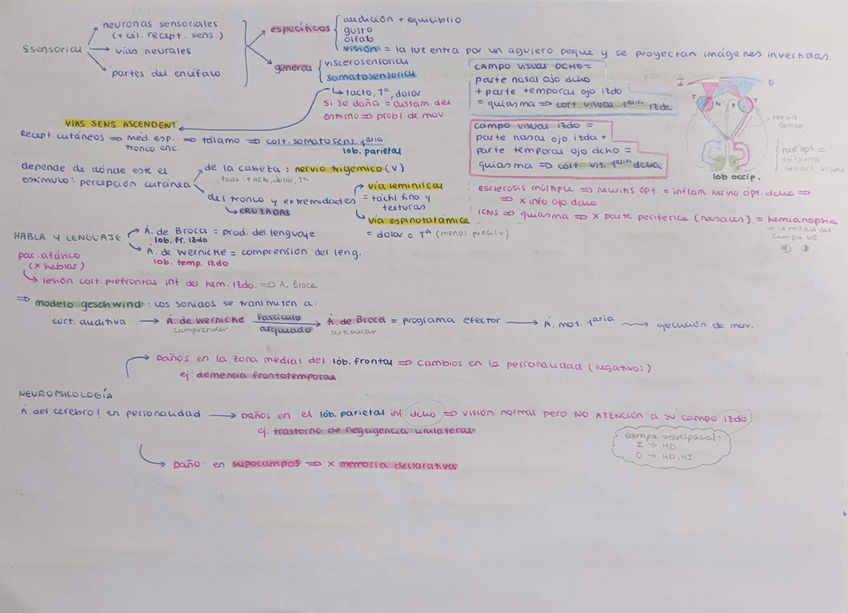 SSensorial
neuronas sensoriales
(+ cél. recept. sens.)
vías neurales
partes del encéfalo
específicos
audición + equilibrio
gusto
olfato
visión = la luz entra por un agujero peque y se proyectan imágenes invertidas
general
viscerosensorial
somatosensorial
tacto, Tª, dolor
si se daña = aislam. del
entorno ⇒ probl. de mov.
campo visual dcho =
parte nasal ojo dcho
+ parte temporal ojo izdo
= quiasma ⇒ cort. visual 1aria izda
campo visual izdo =
parte nasal ojo izdo +
parte temporal ojo dcho =
quiasma ⇒ cort. vis. 1aria dcha
I D
T N N T
nervio
óptico
rad opt =
tálamo
lób occip.
VÍAS SENS ASCENDENT
Recept. cutáneos ⇒ méd. esp. ⇒ tálamo ⇒ cort. somatosens. 1aria
tronco enc. lób. parietal
depende de dónde esté el
estímulo: percepción cutánea
de la cabeza: nervio trigémico (V)
todo: tacto, dolor, Tª
del tronco y extremidades
CRUZADAS
vía leminiscal
= táctil fino y
texturas
vía espinotalámica
= dolor o Tª (menos preciso)
esclerosis múltiple ⇒ neuritis opt. = inflam nervio opt. dcho ⇒
⇒ x info ojo dcho
⇒ quiasma ⇒ x parte periférica (nasales) = hemianopsia
HABLA Y LENGUAJE
Á. de Broca = prod. del lenguaje
lób. fr. izdo
Á. de Wernicke = comprensión del leng.
lób. temp. izdo
pac. afásico
(x hablar)
lesión cort. prefrontal inf del hem. izdo. ⇒ Á. Broca
⇒ modelo geschwind: los sonidos se transmiten a:
cort. auditiva → Á. de Wernicke fascículo arqueado Á. de Broca = programa efector → Á. mot. 1aria → ejecución de mov.
comprender articular
Daños en la zona medial del lób. frontal ⇒ cambios en la personalidad (negativos)
ej: demencia frontotemporal
NEUROPSICOLOGÍA
Daños en el lób. parietal inf. dcho ⇒ visión normal pero NO ATENCIÓN a su campo izdo
ej: trastorno de negligencia unilateral
campo visuespacial
I → HD
D → HD, HI
Daño en hipocampos ⇒ x memoria declarativa